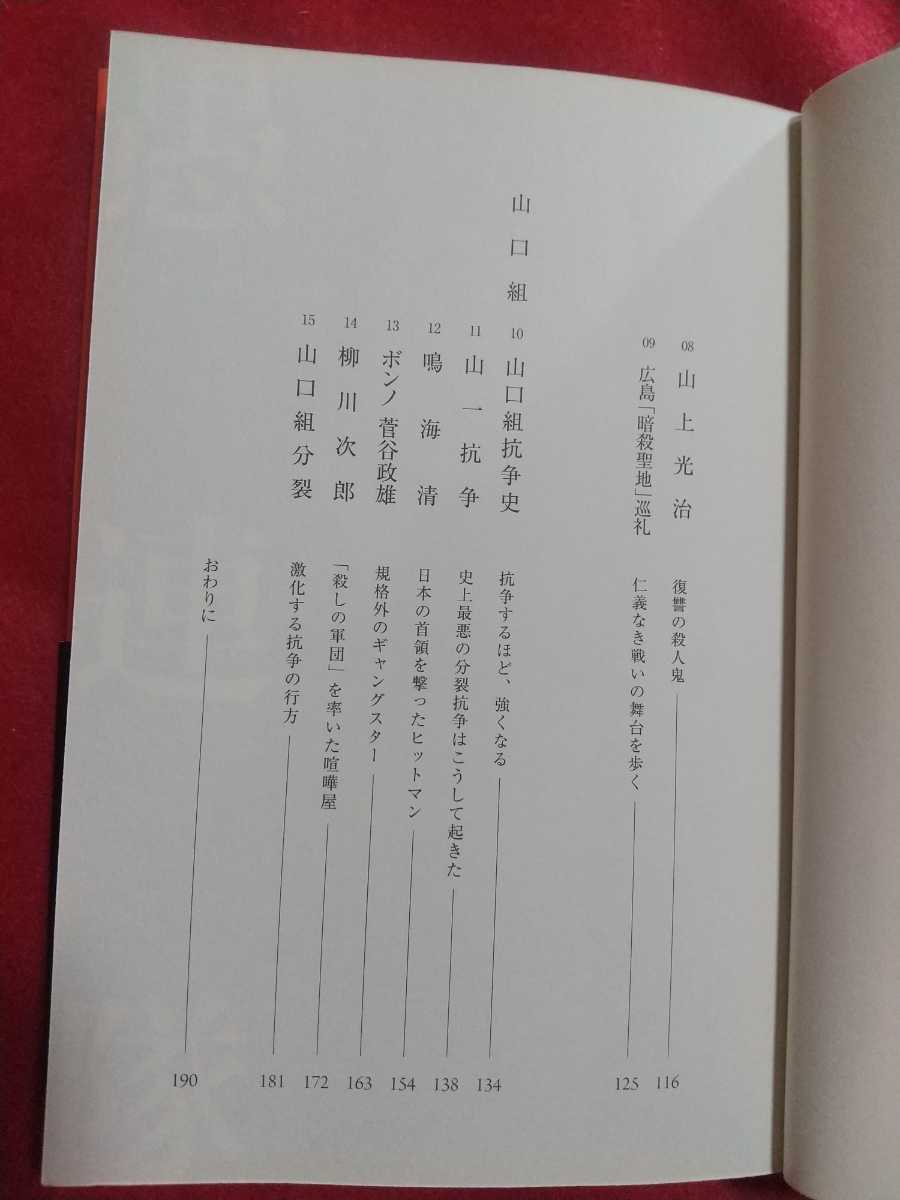 08 山上光治 復讐の殺人鬼 116
09 広島「暗殺聖地」巡礼 仁義なき戦いの舞台を歩く 125
山口組
10 山口組抗争史 抗争するほど、強くなる 134
11 山一抗争 史上最悪の分裂抗争はこうして起きた 138
12 鳴海清 日本の首領を撃ったヒットマン 154
13 ボンノ 菅谷政雄 規格外のギャングスター 163
14 柳川次郎 「殺しの軍団」を率いた喧嘩屋 172
15 山口組分裂 激化する抗争の行方 181
おわりに 190